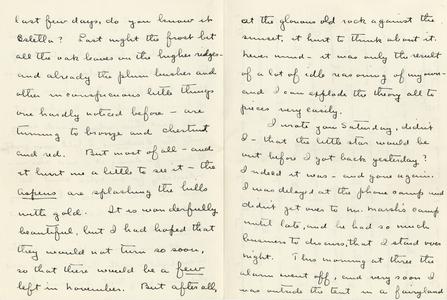 last few days, do you know it
Estella? Last night the frost bit
all the oak leaves on the higher ridges-
and already the plum bushes and
other inconspicuous little things
one hardly noticed before - are
turning to bronze and chestnut
and red. But most of all - and
it hurt me a little to see it - the
aspens are splashing the hills
with gold. It is wonderfully
beautiful, but I had hoped that
they would not turn so soon,
so that there would be a few
left in November. But after all,
at the glorious old rock against the
sunset, it hurt to think about it.
Never mind - it was only the result
of a lot of idle reasoning of my own -
and I can explode the theory all to
pieces very easily.
I wrote you Saturday, didn't
I - that the little star would be
out before I got back yesterday?
Indeed it was - and gone again.
I was delayed at the phone camp and
didn't get over to Mr. Marsh's camp
until late, and he had so much
business to discuss, that I stayed over
night. This morning at three the
alarm went off, and very soon I
was outside the tent in a fairyland